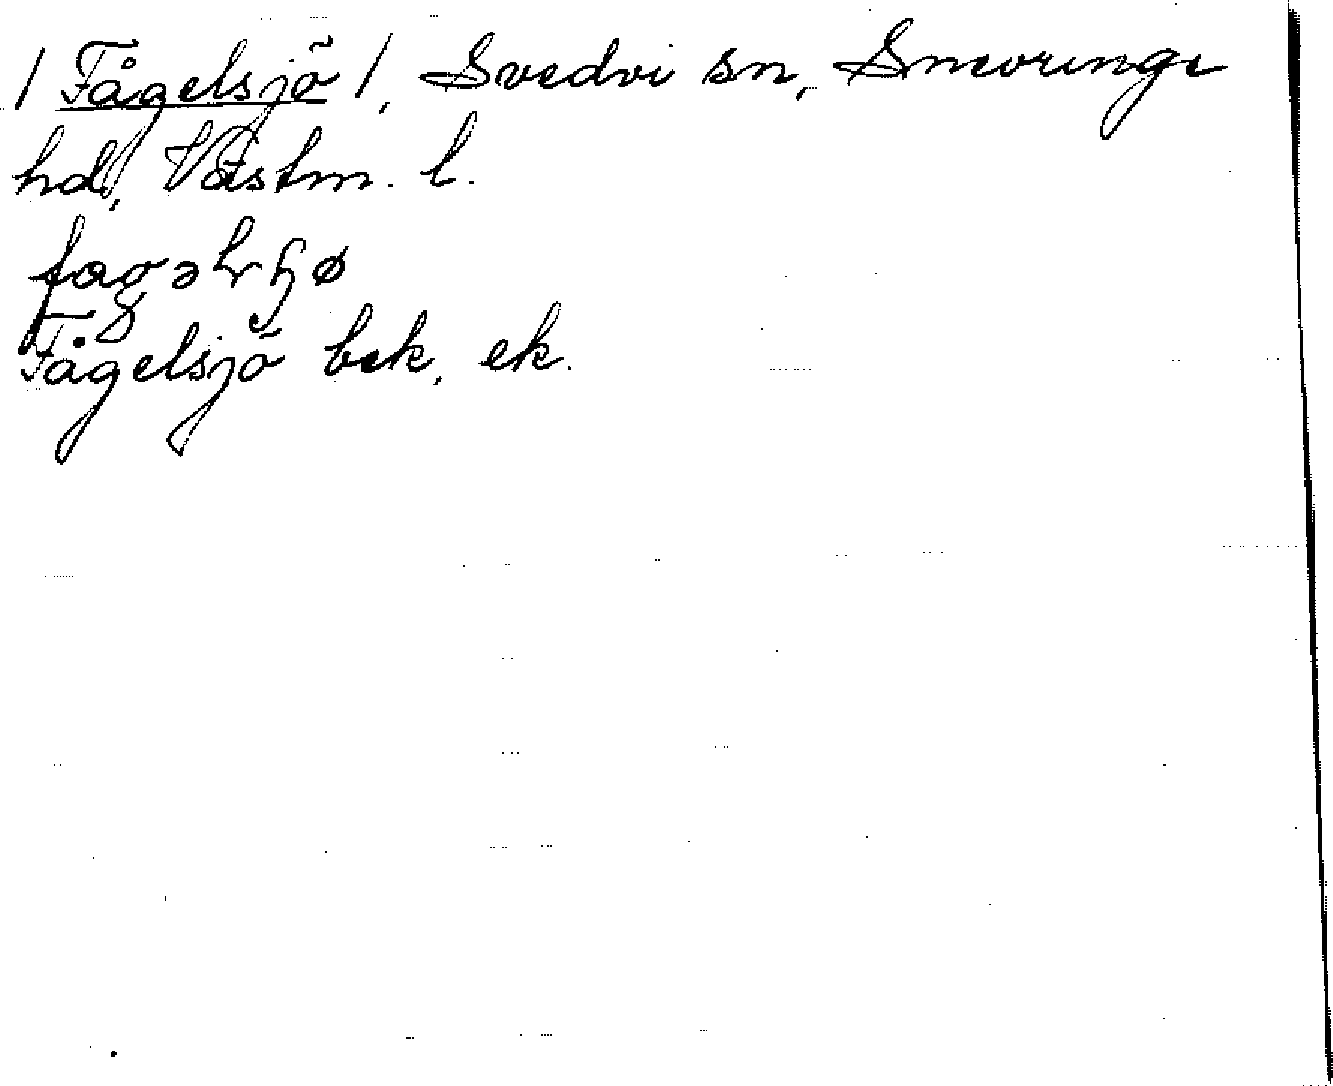 / Fågelsjö /, Svedvi sn, Snevringe
hd, Västm. l.
Fågelsjö bek, ek.